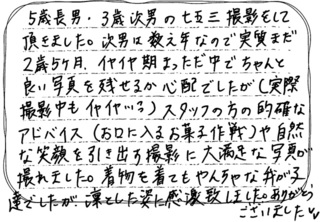 5歳長男・3歳次男の七五三撮影をして
頂きました。次男は数え年なので実質まだ
2歳5ヶ月。イヤイヤ期まっただ中でちゃんと
良い写真を残せるか心配でしたが(実際
撮影中もイヤイヤ…)スタッフの方の的確な
アドバイス(お口に入るお菓子作戦)や自然
な笑顔を引き出す撮影に大満足な写真が
撮れました。着物を着てもやんちゃな弁が子
達でしたが、凛とした姿に感激致しました。ありがとう
ございました